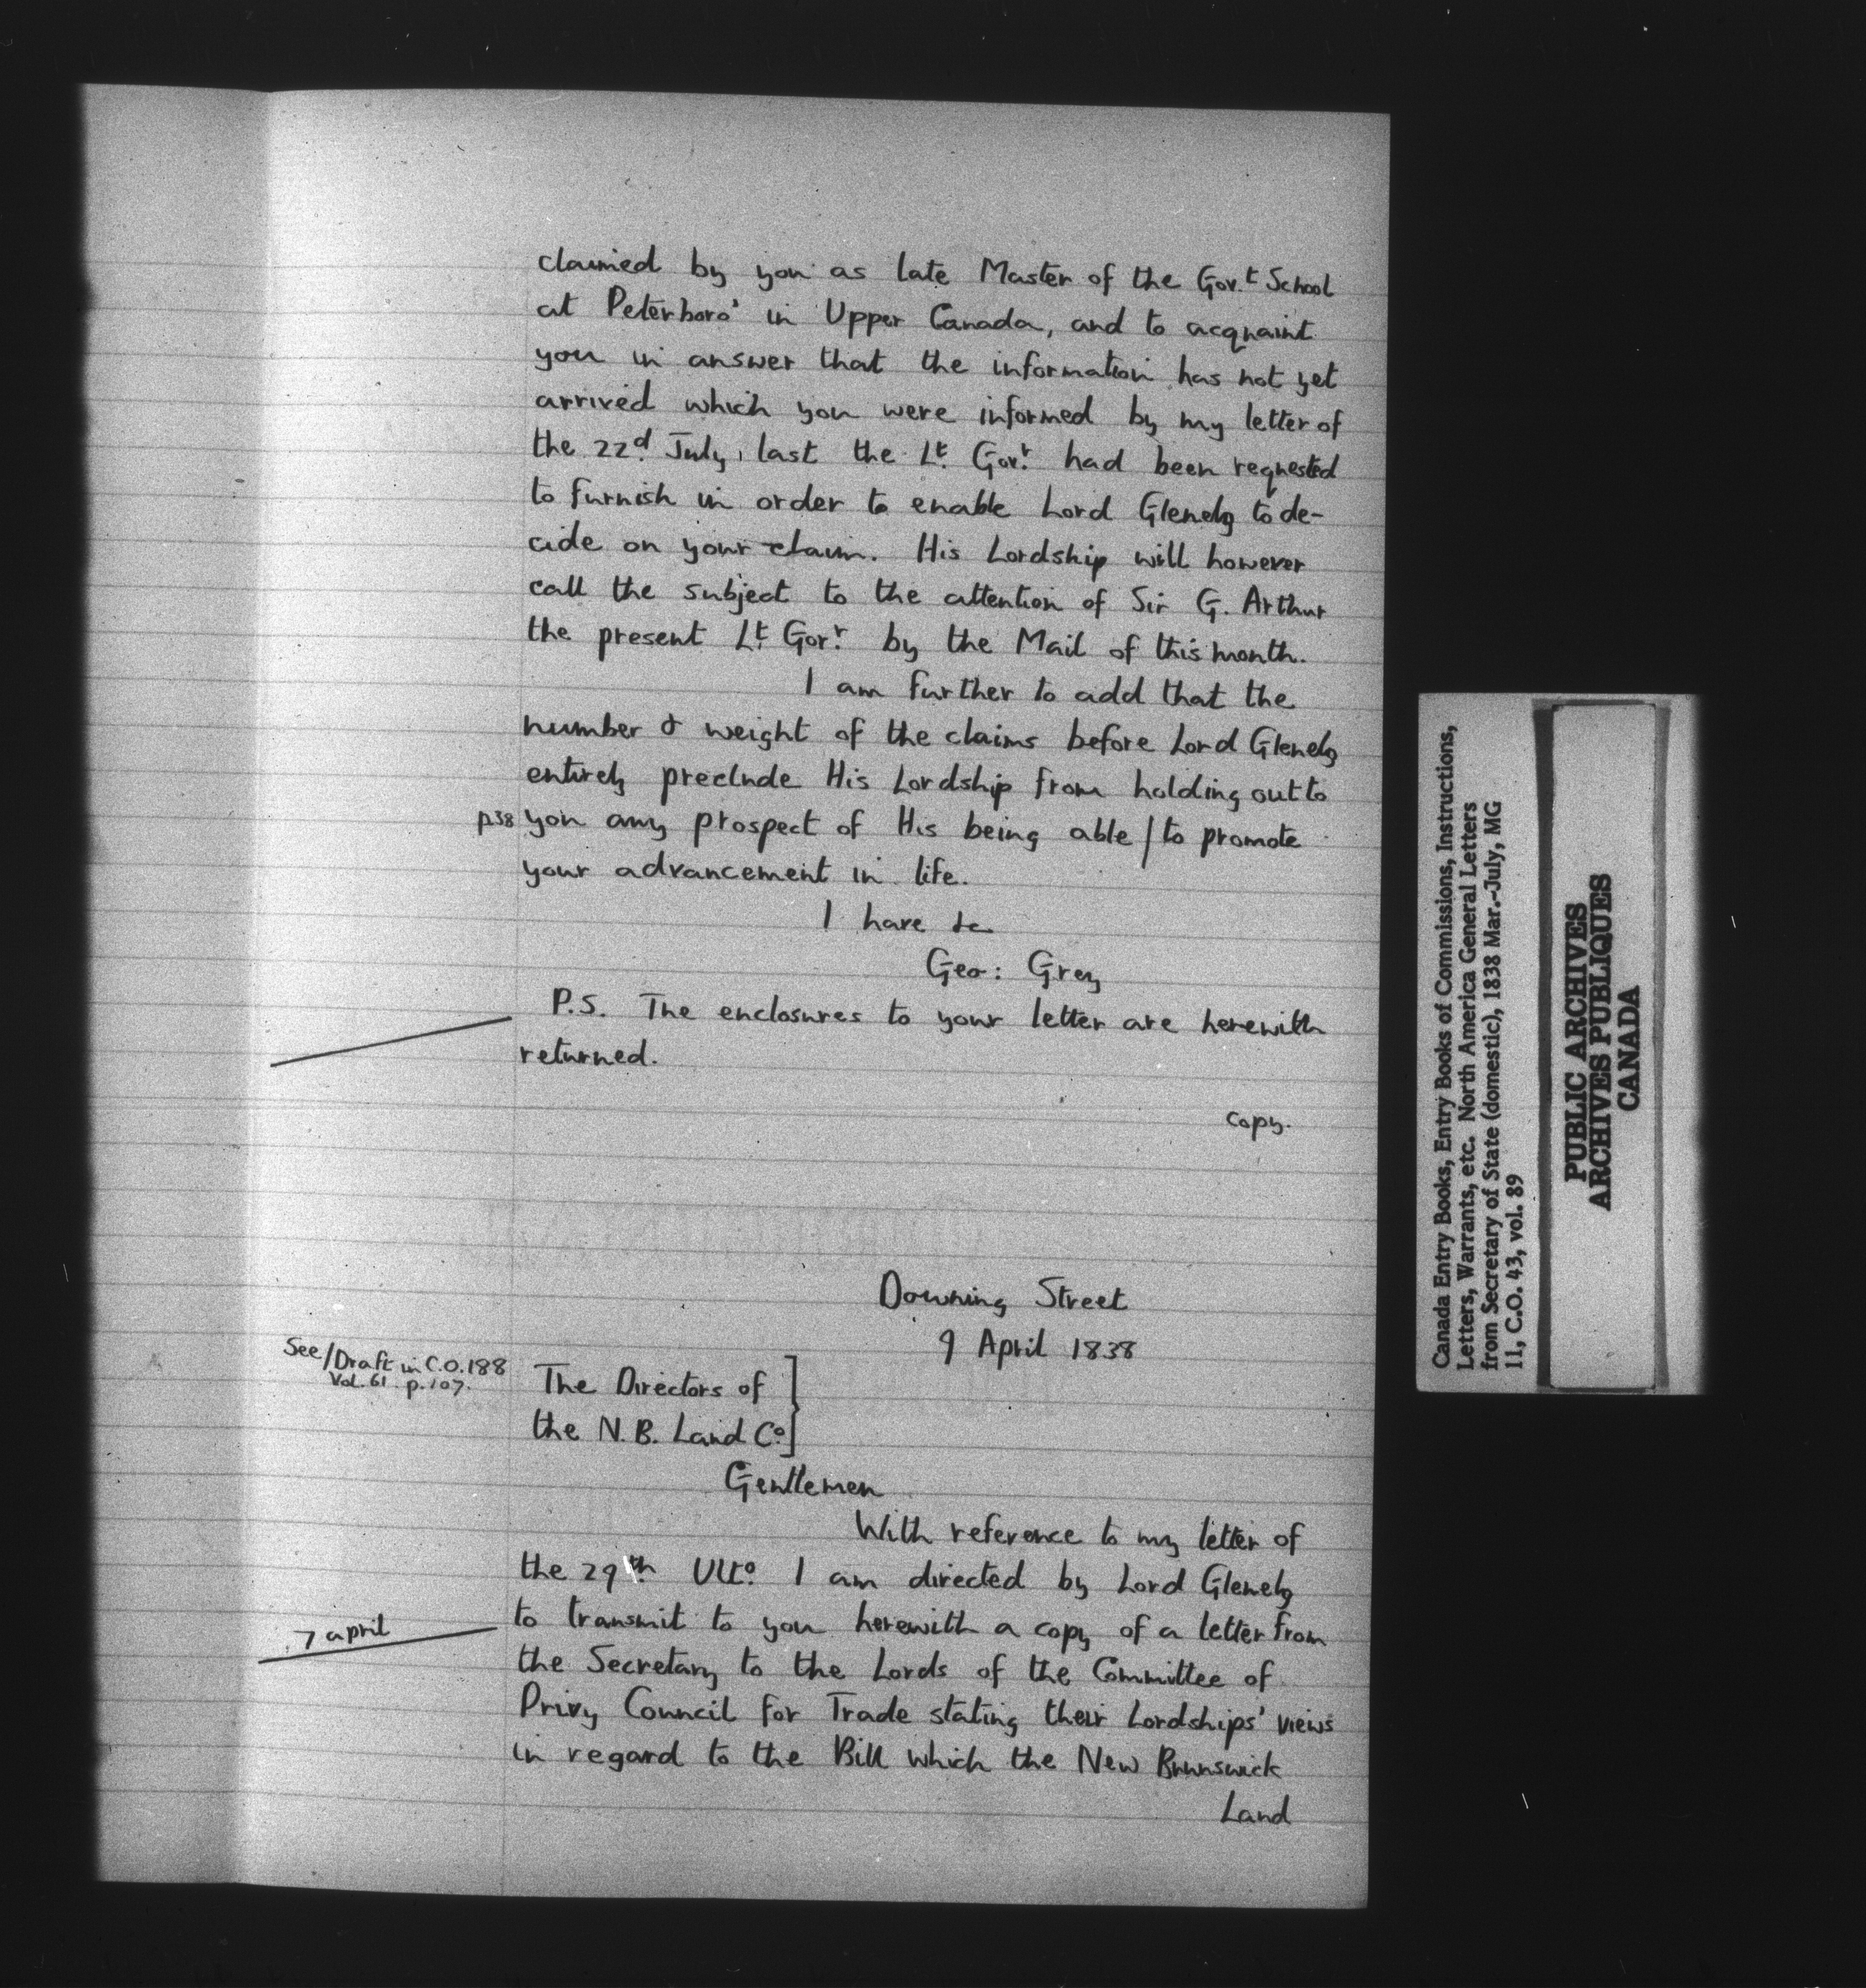 claimed by you as late Master of the Gov.t School
at Peterboro' in Upper Canada, and to acquaint
you in answer that the information has not yet
arrived which you were informed by my letter of
the 22d. July, last the Lt. Gov.r had been requested
to furnish in order to enable Lord Glenelg to de-
cide on your claim. His Lordship will however
call the subject to the attention of Sir G. Arthur
the present Lt. Gov.r by the Mail of this month.
I am further to add that the
number & weight of the claims before Lord Glenelg
entirely preclude His Lordship from holding out to
p38 you any prospect of His being able / to promote
your advancement in life.
I have &c
Geo: Grey
P.S. The enclosures to your letter are herewith
returned.
Copy.
Downing Street
9 April 1838
See/Draft in C.O.188
Vol. 61 p.107.
The Directors of
the N.B. Land Co.
Gentlemen
With reference to my letter of
the 29th. Ulto. I am directed by Lord Glenelg
to transmit to you herewith a copy of a letter from
7 april
the Secretary to the Lords of the Committee of
Privy Council for Trade stating their Lordships' views
in regard to the Bill which the New Brunswick
Land
Canada Entry Books, Entry Books of Commissions, Instructions,
Letters, Warrants, etc. North America General Letters
from Secretary of State (domestic), 1838 Mar.-July, MG
11, C.O. 43, vol. 89
PUBLIC ARCHIVES
ARCHIVES PUBLIQUES
CANADA